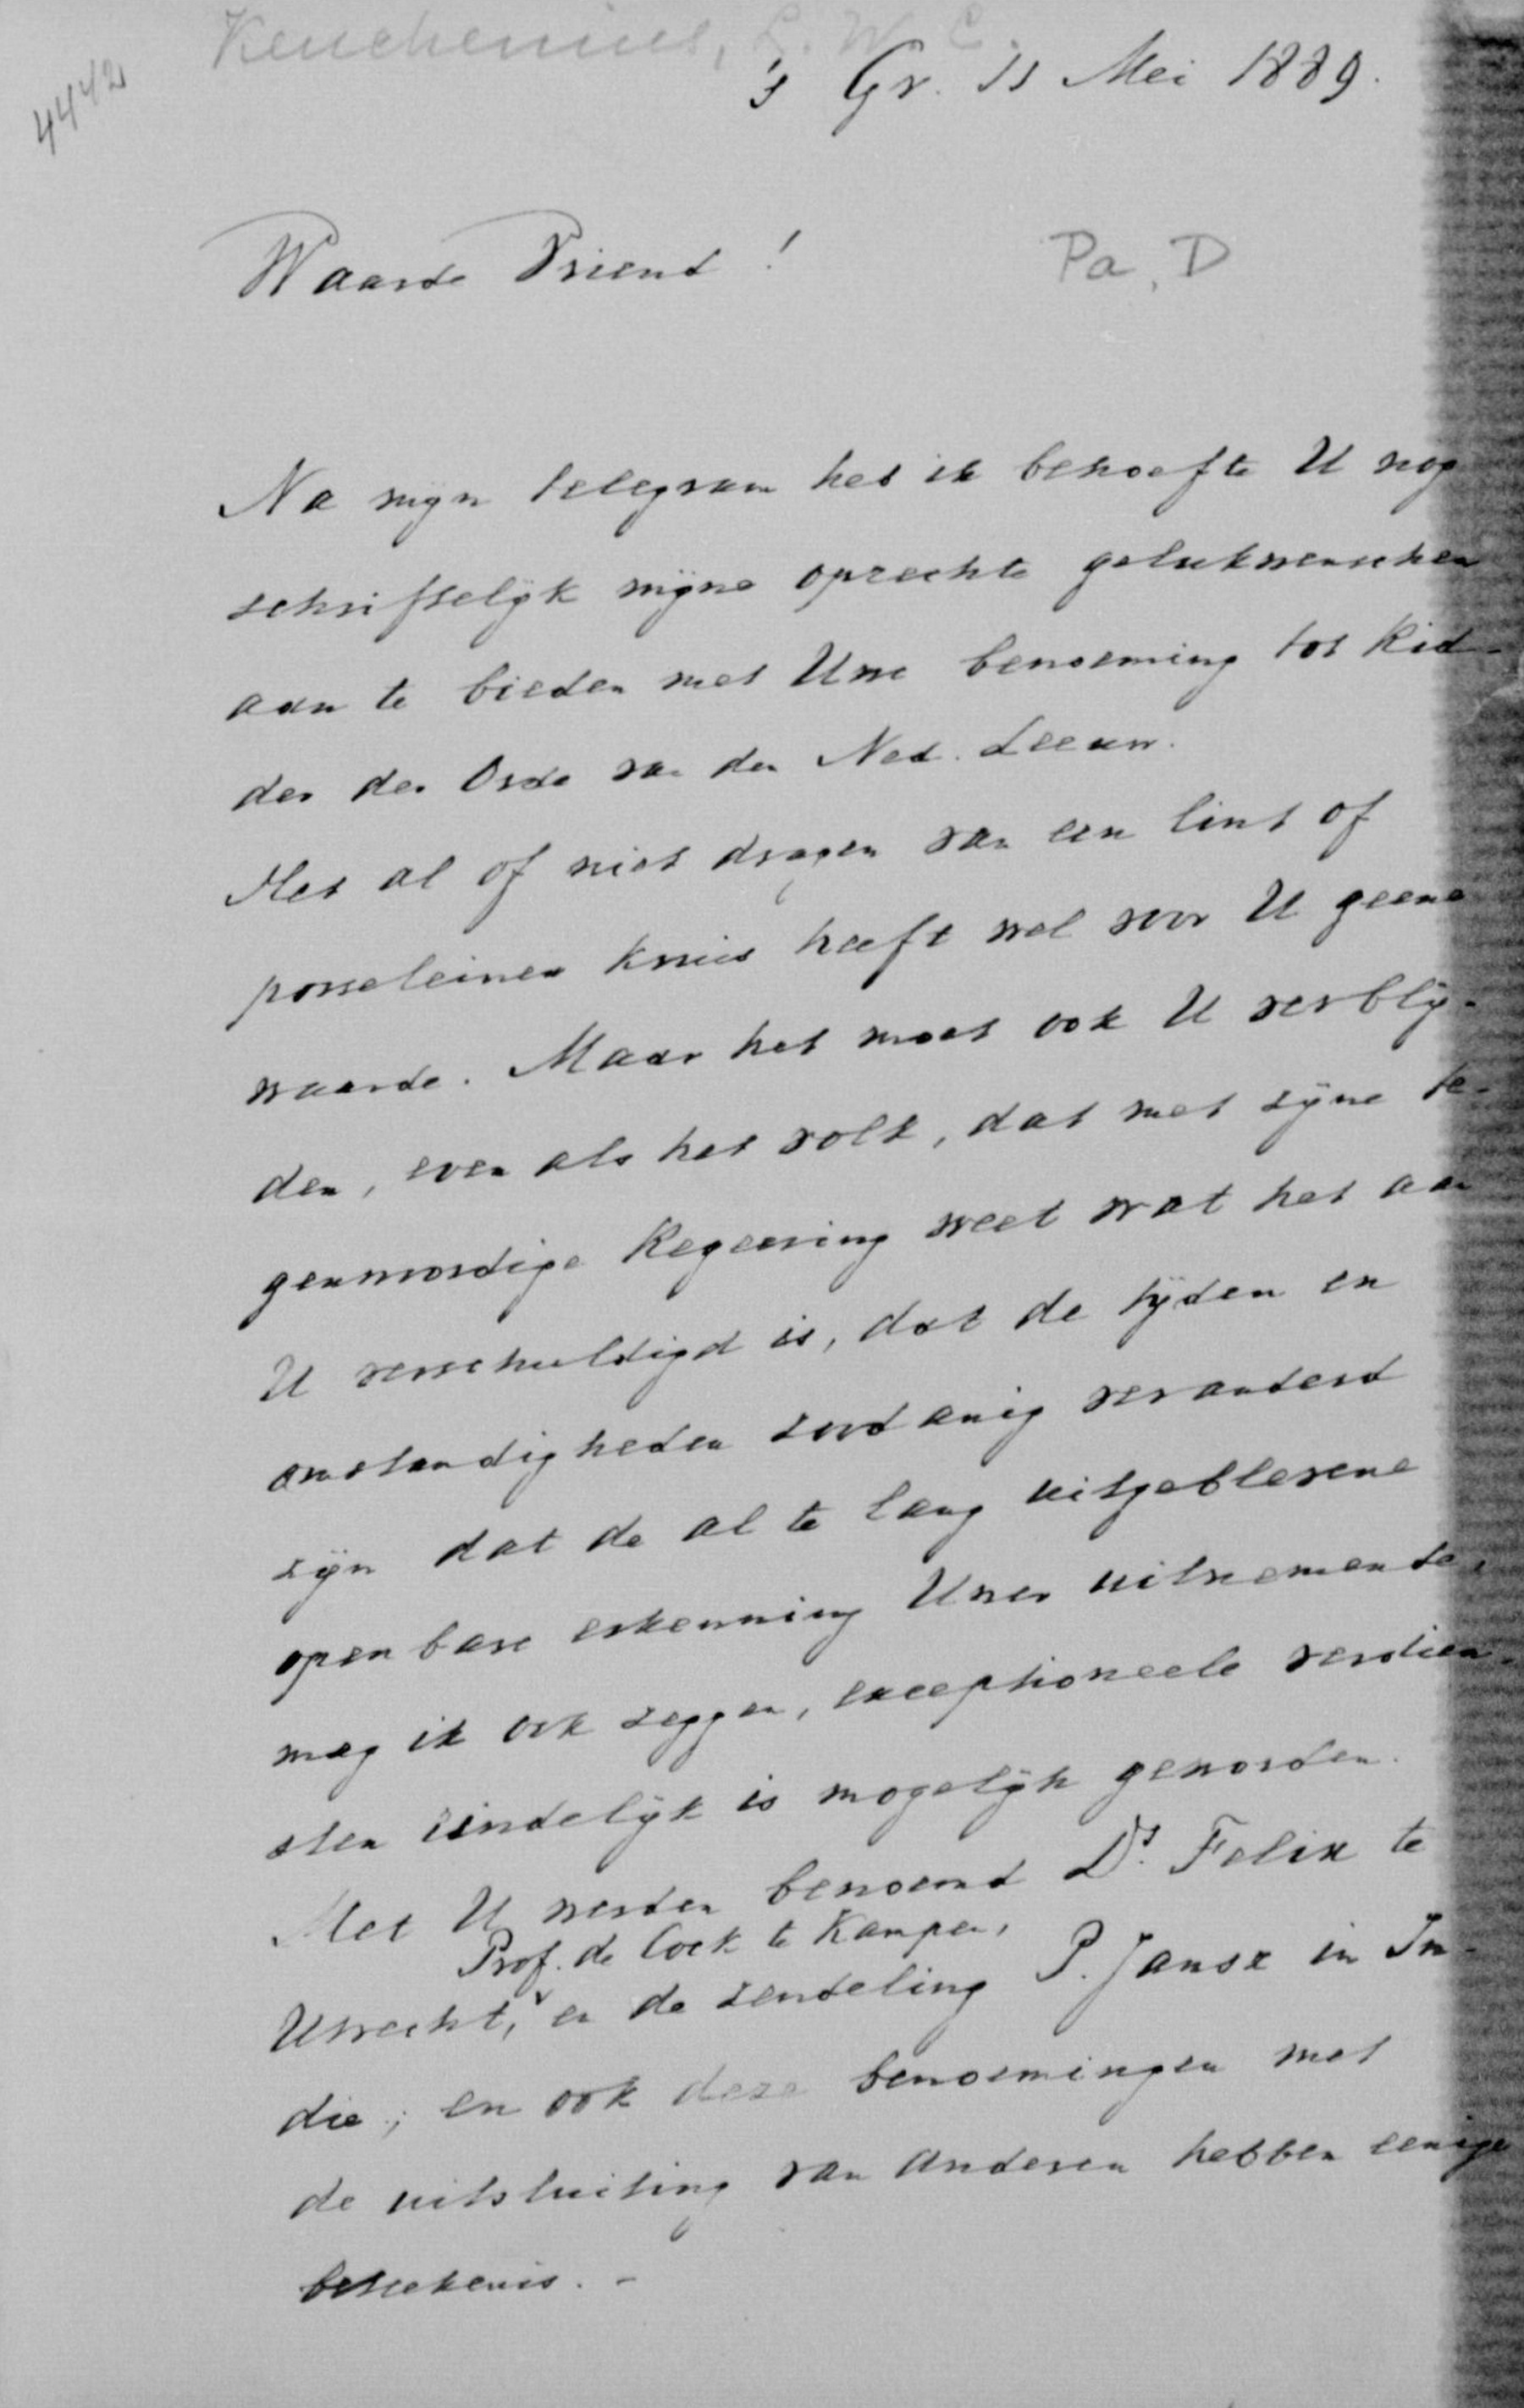 Keuchenius, L. W. C.
4442
's Gr. 11 Mei 1889.
Waarde Vriend!
Pa, D
Na mijn telegram heb ik behoefte U nog
schriftelijk mijne oprechte gelukwenschen
aan te bieden met Uwe benoeming tot Rid-
der der Orde van den Ned. Leeuw.
Het al of niet dragen van een lint of
porseleinen kruis heeft wel voor U geene
waarde. Maar het moet ook U verblij-
den, even als het volk, dat met zijne te-
genwoordige Regeering weet wat het aan
U verschuldigd is, dat de tijden en
omstandigheden zoodanig veranderd
zijn dat de al te lang uitgeblevene
openbare erkenning Uwer uitnemende,
mag ik ook zeggen, exceptioneele verdien-
sten eindelijk is mogelijk geworden.
Met U werden benoemd Ds. Felix te
Prof. de Cock te Kampen,
Utrecht, en de zendeling P. Jansz in In-
die; en ook deze benoemingen met
de uitsluiting van anderen hebben eenige
beteekenis. -